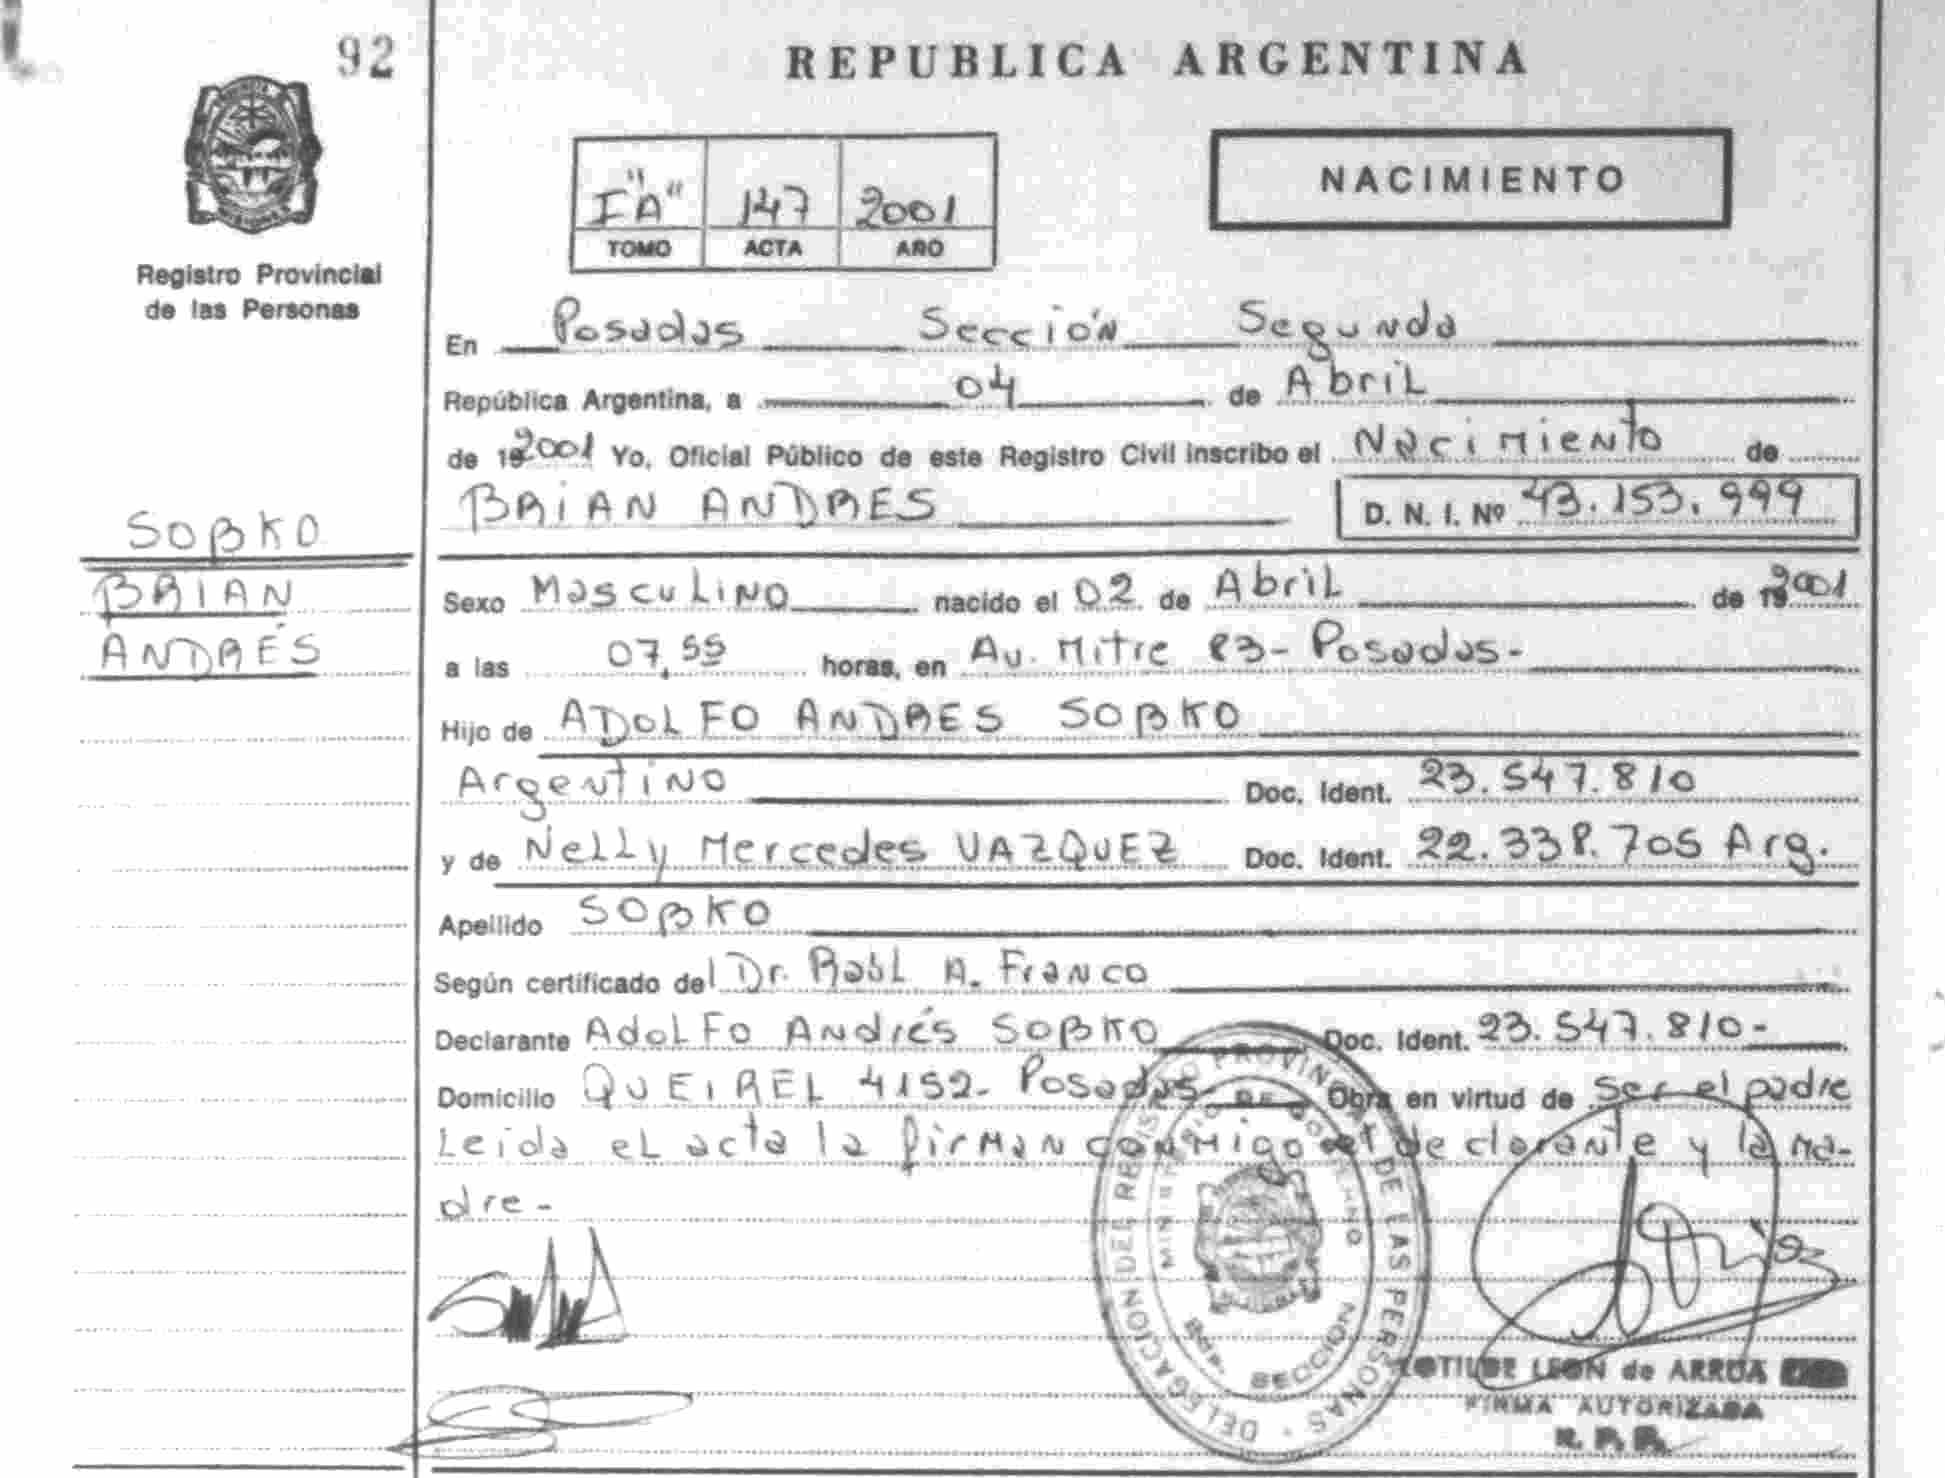 92
REPUBLICA ARGENTINA
I "A" 147 2001
TOMO ACTA AÑO
NACIMIENTO
Registro Provincial
de las Personas
En Posadas Sección Segunda
República Argentina, a 04 de Abril
de 19 2001 Yo, Oficial Público de este Registro Civil inscribo el Nacimiento de
BRIAN ANDRES D. N. I. Nº 43.153.999
SOBKO
BRIAN
ANDRÉS
Sexo Masculino nacido el 02 de Abril de 19 2001
a las 07,55 horas, en Av. Mitre 83- Posadas-
Hijo de ADOLFO ANDRES SOBKO
Argentino Doc. Ident. 23.547.810
y de Nelly Mercedes VAZQUEZ Doc. Ident. 22.338.705 Arg.
Apellido SOBKO
Según certificado del Dr. Raúl A. Franco
Declarante Adolfo Andrés SOBKO Doc. Ident. 23.547.810-
Domicilio QUEIREL 4152- Posadas Obra en virtud de ser el padre
Leida el acta la firman conmigo el declarante y la ma-
dre-
DELEGACION DEL REGISTRO PROVINCIAL DE LAS PERSONAS
MINISTERIO DE GOBIERNO
SECCION
LEON de ARRUA
FIRMA AUTORIZADA
R. P. P.